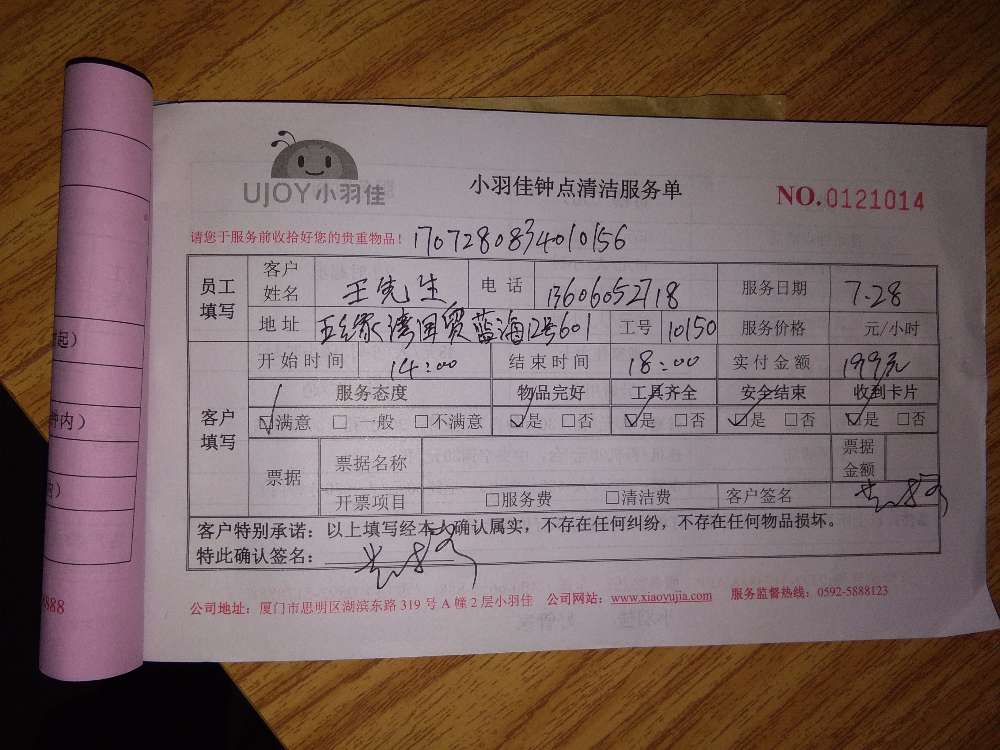 UJOY小羽佳
小羽佳钟点清洁服务单
NO.0121014
请您于服务前收拾好您的贵重物品！ 1707280834010156
员工填写 客户姓名 王先生 电 话 13606052718 服务日期 7.28
地 址 五缘湾国贸蓝海12号601 工号 10150 服务价格 元/小时
客户填写 开始时间 14:00 结束时间 18:00 实付金额 199元
服务态度 物品完好 工具齐全 安全结束 收到卡片
☑满意 □ 一般 □不满意 ☑是 □否 ☑是 □否 ☑是 □否 ☑是 □否
票据 票据名称 票据金额
开票项目 □服务费 □清洁费 客户签名
客户特别承诺：以上填写经本人确认属实，不存在任何纠纷，不存在任何物品损坏。
特此确认签名：
公司地址：厦门市思明区湖滨东路 319 号 A 幢 2 层小羽佳 公司网站：www.xiaoyujia.com 服务监督热线：0592-5888123
起）
钟内）
内）
8888